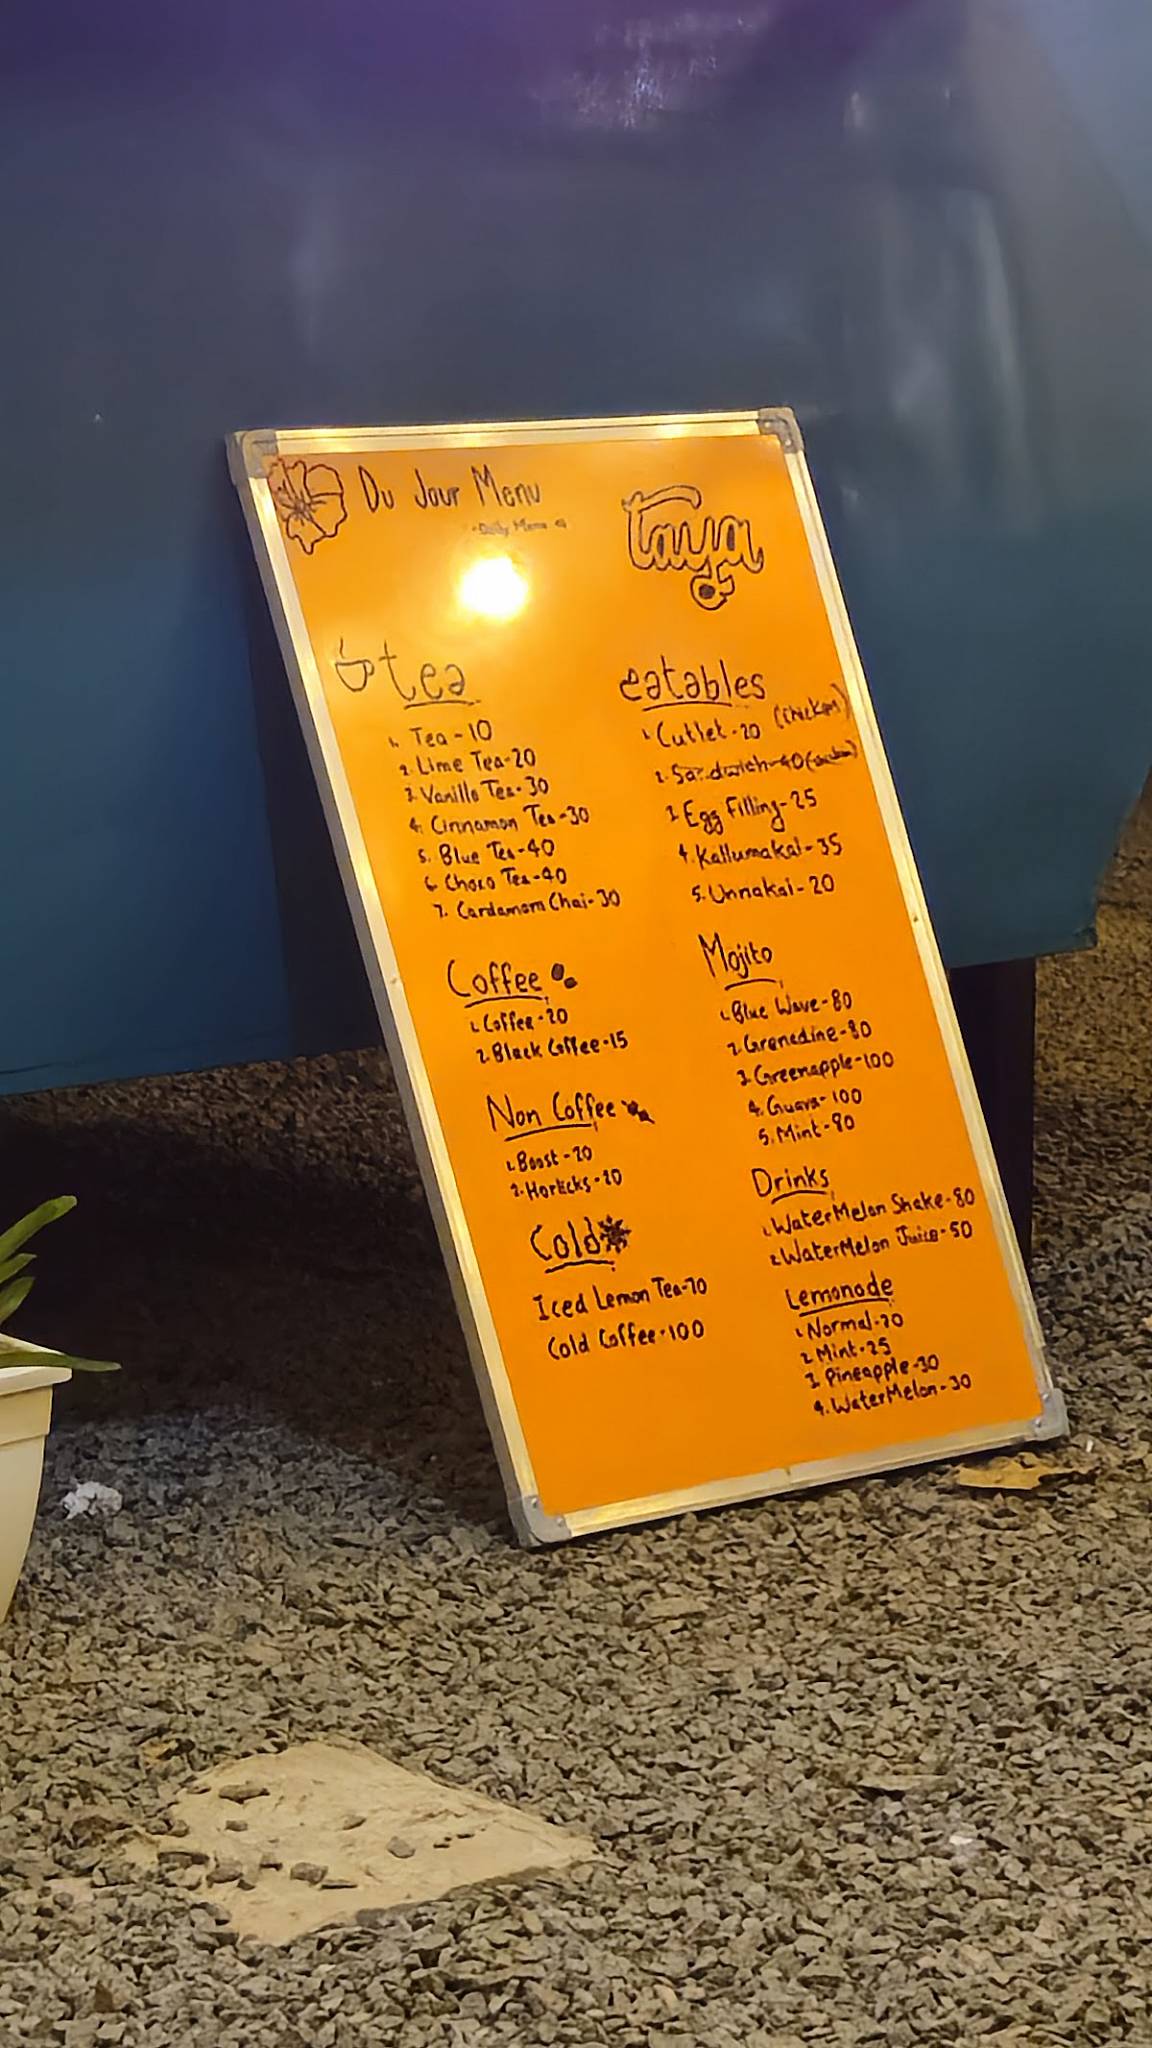 Du Jour Menu
Daily Menu
taya
tea
1. Tea - 10
2. Lime Tea-20
3. Vanilla Tea-30
4. Cinnamon Tea-30
5. Blue Tea-40
6. Choco Tea-40
7. Cardamom Chai-30
Coffee
1. Coffee-20
2. Black Coffee-15
Non Coffee
1. Boost-20
2. Horlicks-20
Cold
Iced Lemon Tea-70
Cold Coffee-100
eatables
1. Cutlet-20 (Chicken)
2. Sandwich-40
3. Egg Filling-25
4. Kallumakai-35
5. Unnakai-20
Mojito
1. Blue Wave-80
2. Grenadine-80
3. Greenapple-100
4. Guava-100
5. Mint-80
Drinks
1. WaterMelon Shake-80
2. WaterMelon Juice-50
Lemonade
1. Normal-20
2. Mint-25
3. Pineapple-30
4. WaterMelon-30